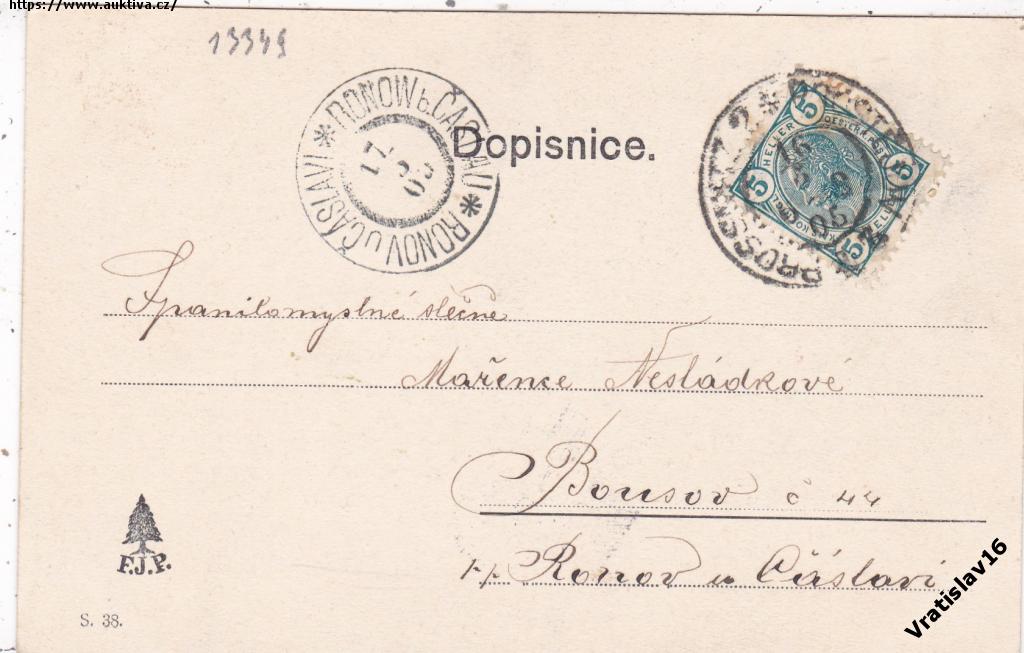 https://www.auktiva.cz/
13349
RONOW b. ČASLAU * RONOV U ČÁSLAVI *
17
5
05
Dopisnice.
5 HELLER 5
5 5
PROSSNITZ 2 *
05
Spanilomyslné slečně
Mařence Nesládkové
Bousov č 44
p. Ronov u Čáslavi
F.J.P.
S. 38.
Vratislav16